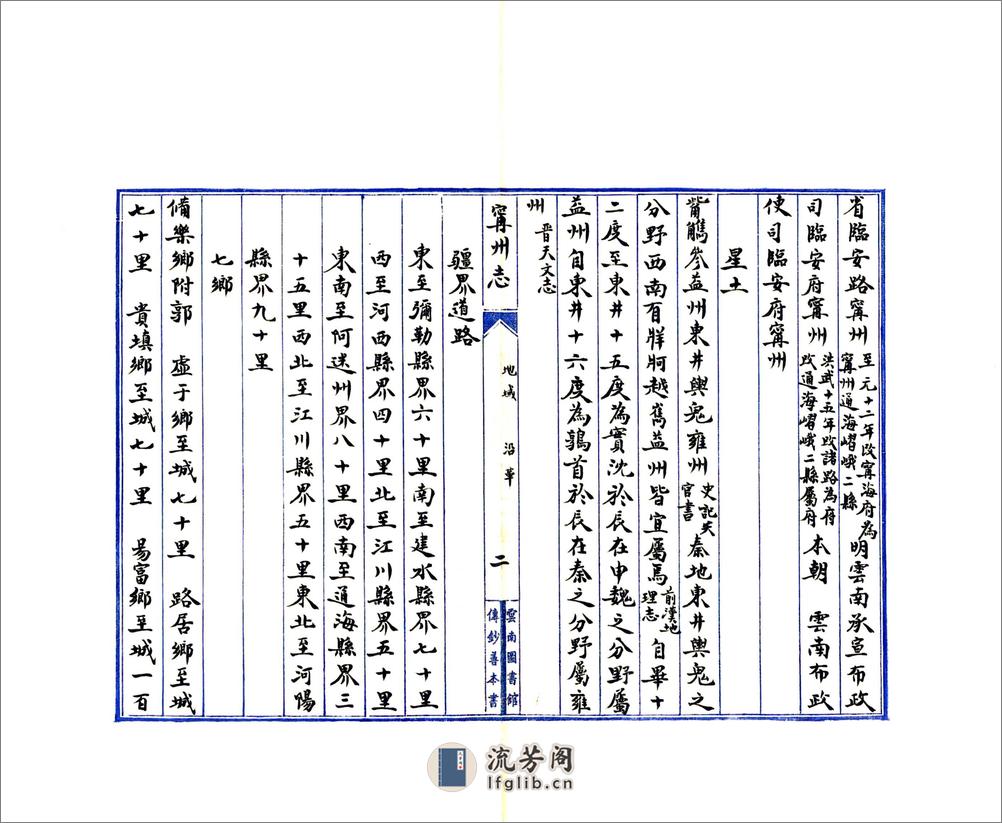 省臨安路寧州至元十二年改寧海府為寧州通海嶍峨二縣明雲南承宣布政
司臨安府寧州洪武十五年改諸路為府改通海嶍峨二縣屬府本朝 雲南布政
使司臨安府寧州
星土
觜觿參益州東井輿鬼雍州史記天官書秦地東井輿鬼之
分野西南有牂牁越嶲益州皆宜屬焉前漢地理志自畢十
二度至東井十五度為實沈於辰在申魏之分野屬
益州自東井十六度為鶉首於辰在秦之分野屬雍
州晉天文志
寧州志 地域 沿革 二 雲南圖書館傳鈔善本書
疆界道路
東至彌勒縣界六十里南至建水縣界七十里
西至河西縣界四十里北至江川縣界五十里
東南至阿迷州界八十里西南至通海縣界三
十五里西北至江川縣界五十里東北至河陽
縣界九十里
七鄉
備樂鄉附郭 虛于鄉至城七十里 路居鄉至城
七十里 貴填鄉至城七十里 易富鄉至城一百
流芳阁
lfglib.cn